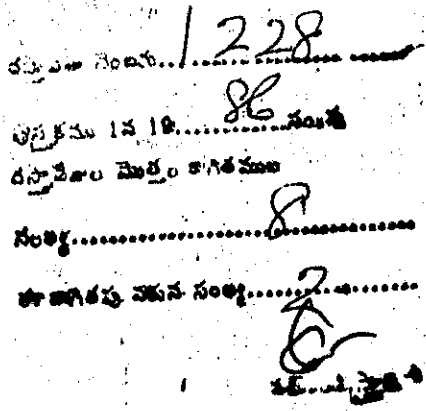 దస్తావేజు నెంబరు....1228........
పుస్తకము 1వ 19....86....సం॥పు
దస్తావేజుల మొత్తం కాగితముల
సంఖ్య....8....
ఈ కాగితపు వరుస సంఖ్య....2....